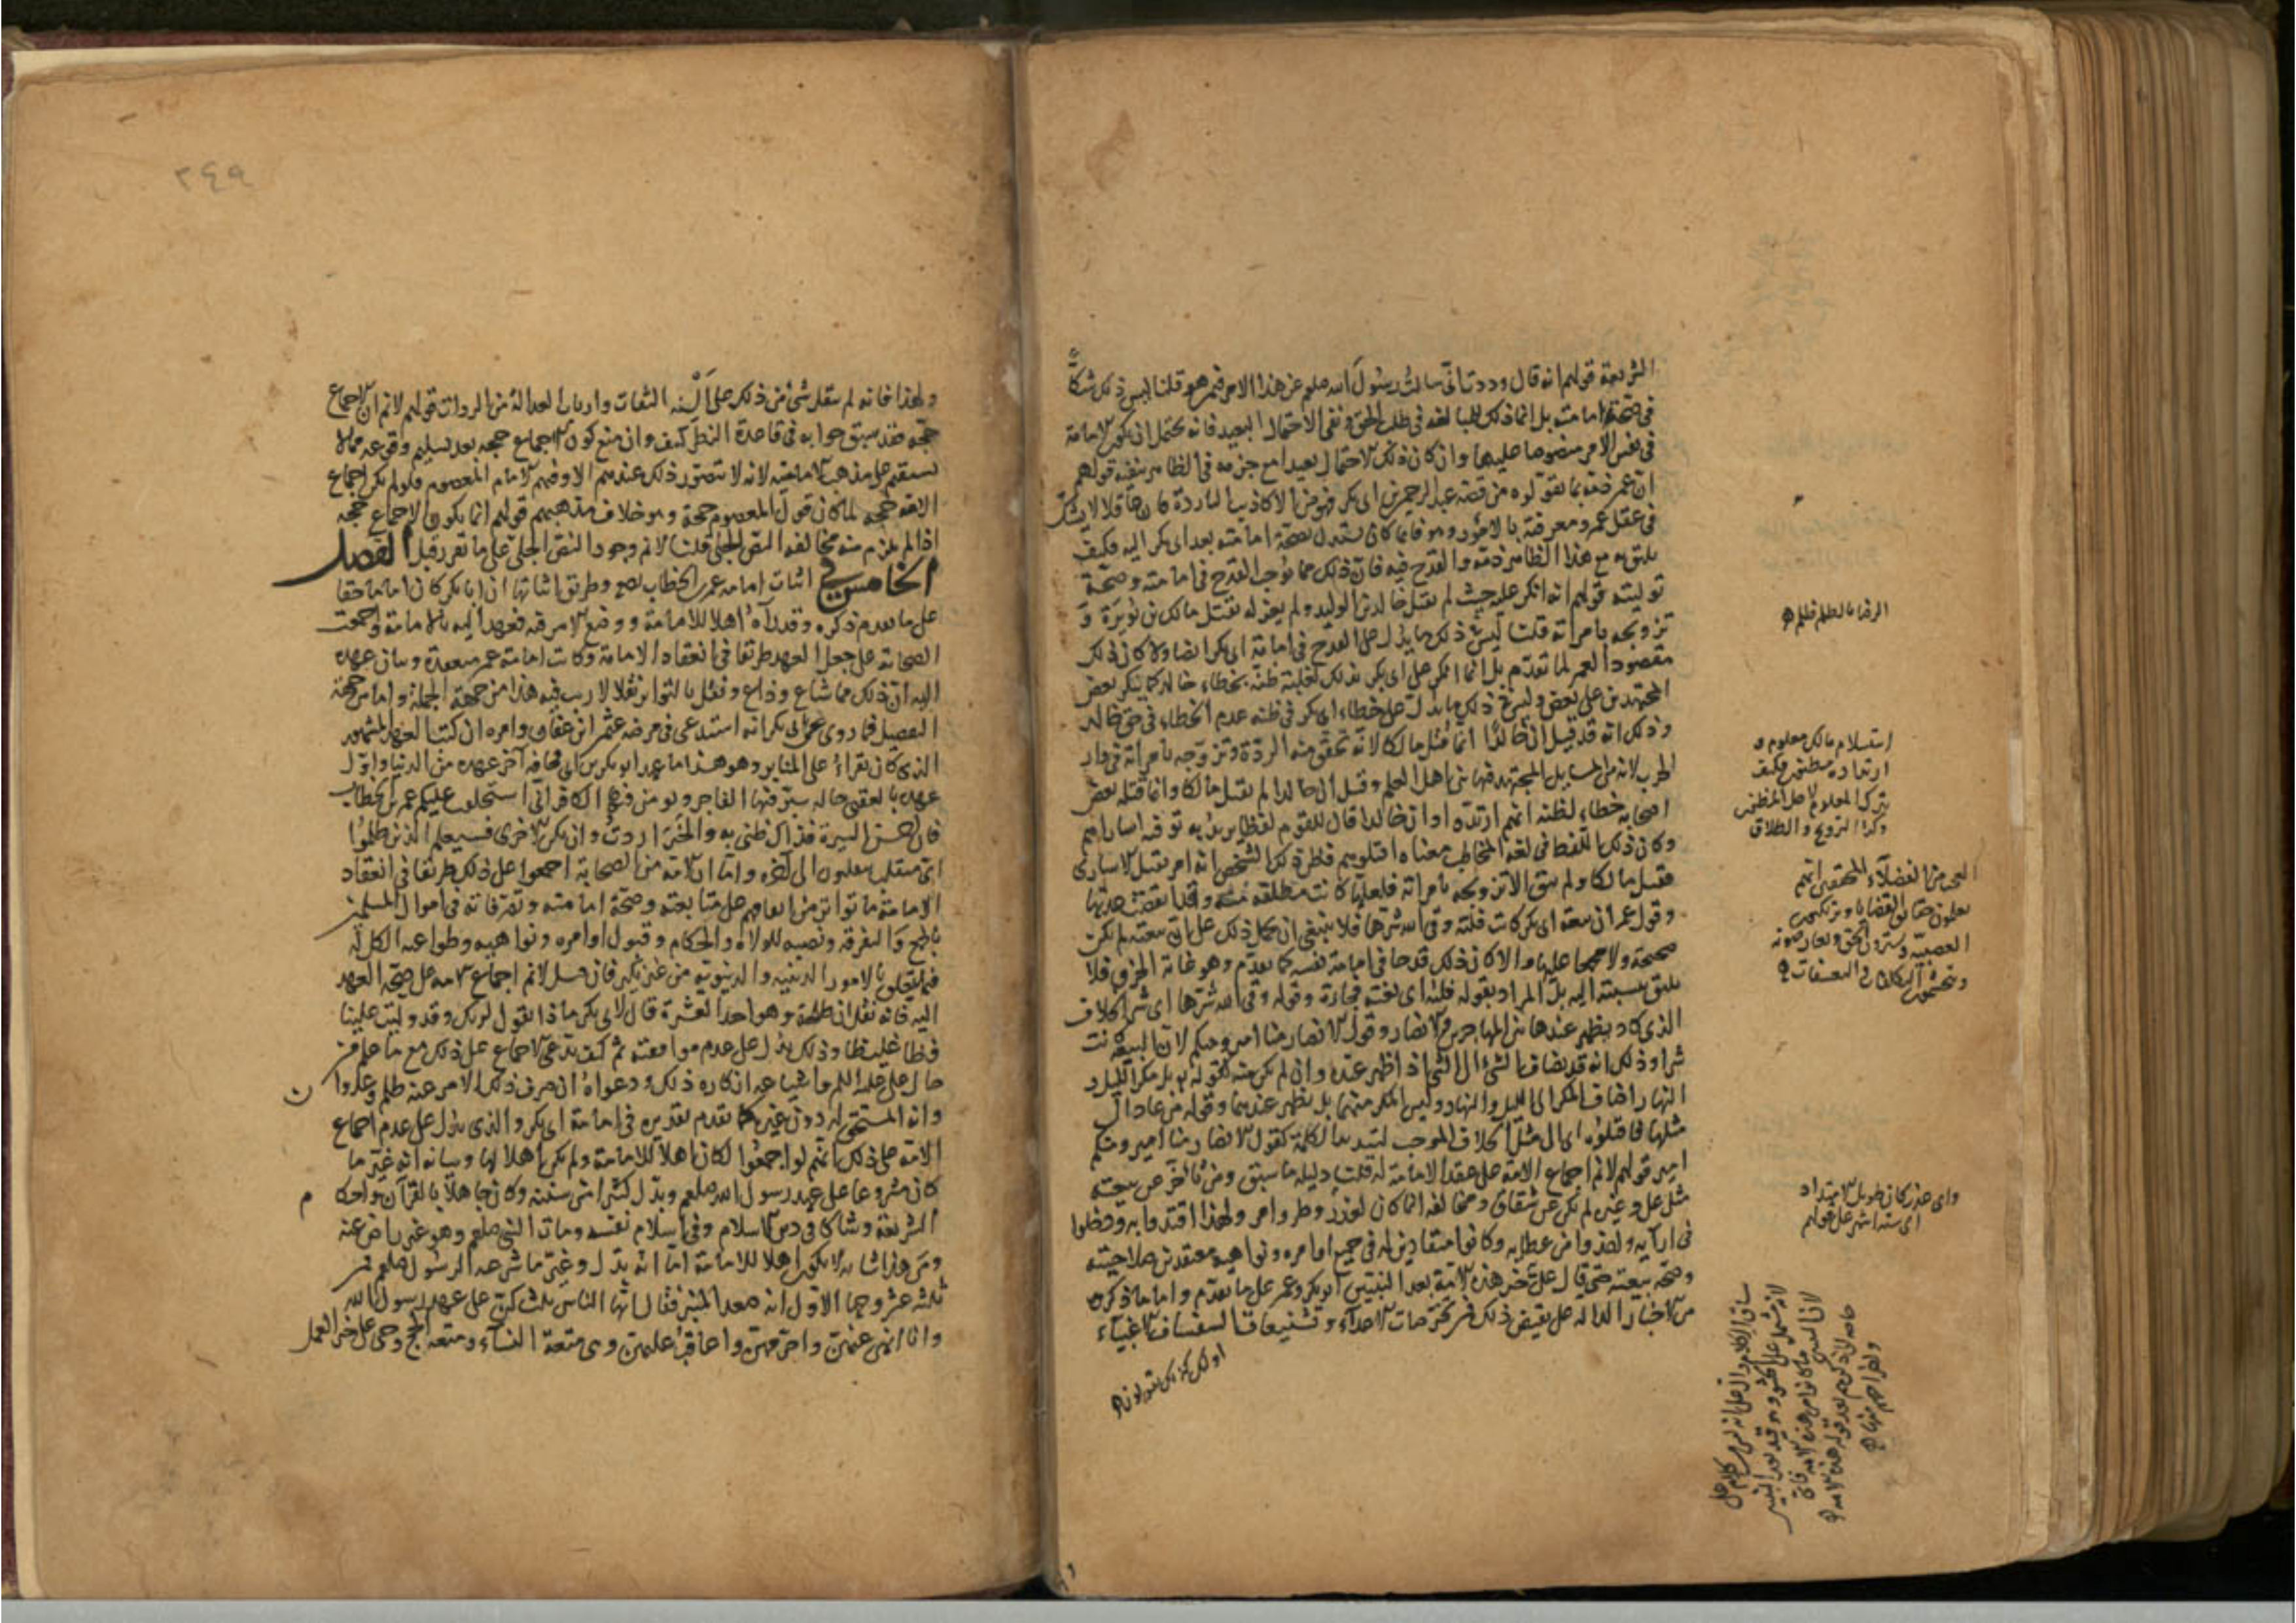 الشريعة قولهم انه قال وددت انى سالت رسول الله صلعم عن هذا الامر فيمن هو قلنا ليس ذلك شكا
فى صحة امامته بل انما ذلك للمبالغة فى طلب الحق ونفى الاحتمال البعيد فانه يحتمل ان يكون الامامة
فى نفس الامر منصوصا عليها وان كان ذلك الاحتمال بعيدا مع جزمه فى الظاهر بنفيه قولهم
ان عمر ذمه بما نقلوه من قصة عبد الرحمن بن ابى بكر فهو من الاكاذيب الباردة فان عاقلا لا يشك
فى عقل عمر ومعرفته بالامور وهو فانما كان يستدل لصحة امامته بعهد ابى بكر اليه فكيف
يليق به مع هذا الظاهر ذمه والقدح فيه فان ذلك مما يوجب القدح فى امامته وصحة
توليته قولهم انه انكر عليه حيث لم يقتل خالد بن الوليد ولم يعزله بقتل مالك بن نويرة و
تزويجه بامراته قلنا ليس ذلك ما يدل على القدح فى امامة ابى بكر ايضا ولا كان ذلك
مقصودا لعمر لما تقدم بل انما انكر على ابى بكر ذلك لغلبة ظنه بخطاء خالد كما ينكر بعض
المجتهدين على بعض وليس فى ذلك ما يدل على خطاء ابى بكر فى ظنه عدم الخطاء فى حق خالد
وذلك انه قد قيل ان خالدا انما قتل مالكا لانه تحقق منه الردة وتزوجه بامراته فى دار
الحرب لانه من المسايل المجتهد فيها بين اهل العلم وقيل ان خالدا لم يقتل مالكا وانما قتله بعض
اصحابه خطاء لظنه انهم ارتدوا وان خالدا قال للقوم لفظا يريد به توقية اساراهم
وكان ذلك اللفظ فى لغة المخاطب معناه اقتلوهم فظن ذلك الشخص انه امر بقتل الاسارى
فقتل مالكا ولم يبق الا تزويجه بامراته فلعلها كانت مطلقة منه وقد انقضت عدتها
وقول عمر ان بيعة ابى بكر كانت فلتة وقى الله شرها فلا ينبغى ان يحمل ذلك على ان بيعته لم تكن
صحيحة ولا مجمعا عليها والا كان ذلك قدحا فى امامة نفسه كما تقدم وهو غاية الخرق فلا
يليق نسبته اليه بل المراد بقوله فلتة اى بغتة فجاءة وقوله وقى الله شرها اى شر الخلاف
الذى كاد يظهر عندها بين المهاجرين والانصار وقول الانصار منا امير ومنكم لا ان البيعة كانت
شرا وذلك انه قد يضاف الشئ الى الشئ اذا ظهر عنده وان لم يكن منه كقوله بل مكر الليل و
النهار اضاف المكر الى الليل والنهار وليس المكر منهما بل يظهر عندهما وقوله فمن عاد الى
مثلها فاقتلوه اى الى مثل الخلاف الموجب لتبديد الكلمة كقول الانصار منا امير ومنكم
امير قولهم لانم اجماع الامة على عقد الامامة له قلنا دليله ما سبق ومن تاخر عن بيعته
مثل على وغيره لم يكن عن شقاق ومخالفة انما كان لعذر وطرو امر ولهذا اقتدوا به ودخلوا
فى ارآيه واخذوا من عطايه وكانوا منقادين له فى جميع اوامره ونواهيه معتقدين صلاحيته
وصحة بيعته حتى قال على خير هذه الامة بعد النبيين ابو بكر وعمر على ما تقدم واما ما ذكروه
من الاخبار الدالة على نقيض ذلك فمن تخرصات الاعداء وتشنيعات السفساف الاغبياء
الرضا بالظلم ظلم
استسلام مالك معلوم و
ارتداده مظنون فكيف
يترك المعلوم لاجل المظنون
وكذا التزويج والطلاق
العجب من الفضلاء المحققين انهم
يعلمون حقايق القضايا وتركبهم
العصبية ويسترون الحق ويعارضونه
واى عذر كان طويل الامتداد
٢٤٩
ولهذا فانه لم ينقل شئ من ذلك على ألسنة الثقات وارباب العدالة من الرواة قولهم لانم ان الاجماع
حجة فقد سبق جوابه فى قاعدة النظر كيف وان منع كون الاجماع حجة بعد تسليم وقوعه مما لا
يستقيم على مذهب الامامية لانه لا يتصور ذلك عندهم الا وفيهم الامام المعصوم فلو لم يكن اجماع
الامة حجة لما كان قول المعصوم حجة وهو خلاف مذهبهم قولهم انما يكون الاجماع حجة
اذا لم يلزم منه مخالفة النص الجلى قلنا لانم وجود النص الجلى على ما تقرر قبل الفصل
الخامس فى اثبات امامة عمر بن الخطاب رضه وطريق اثباتها ان ابا بكر كان اماما حقا
على ما تقدم ذكره وقد رآه اهلا للامامة ووضع الامر فيه فعهد اليه بالامامة واجمعت
الصحابة على جعل العهد طريقا فى انعقاد الامامة وكانت امامة عمر منعقدة وبيان عهده
اليه ان ذلك مما شاع وذاع ونقل بالتواتر نقلا لا ريب فيه هذا من جهة الجملة واما من جهة
التفصيل فما روى عن ابى بكر انه استدعى فى مرضه عثمان بن عفان وامره ان كتب العهد المشهور
الذى كان يقراء على المنابر وهو هذا ما عهد ابو بكر بن ابى قحافة آخر عهده من الدنيا واول
عهده بالعقبى حاله يبر فيها الفاجر ويؤمن فيها الكافر انى استخلفت عليكم عمر بن الخطاب
فان احسن السيرة فذاك ظنى به والخير اردت وان يكن الاخرى فسيعلم الذين ظلموا
اى منقلب ينقلبون الى آخره واما ان الامة من الصحابة اجمعوا على ذلك طريقا فى انعقاد
الامامة ما تواتر من اتفاقهم على متابعته وصحة امامته وتصرفاته فى اموال المسلمين
بالجمع والتفرقة ونصبه للولاة والحكام وقبول اوامره ونواهيه وطواعية الكل له
فيما يتعلق بالامور الدينية والدنيوية من غير نكير فان قيل لانم اجماع الامة على صحة العهد
اليه فانه نقل ان طلحة وهو احد العشرة قال لابى بكر ماذا تقول لربك وقد وليت علينا
فظا غليظا وذلك يدل على عدم موافقته ثم كيف يدعى الاجماع على ذلك مع ما علم من
حال على عليه السلم وما نحيا عنه انكاره ذلك ودعواه ان صرف ذلك الامر عنه ظلم وعدوان
وانه المستحق له دون غيره كما تقدم تقديره فى امامة ابى بكر والذى يدل على عدم اجماع
الامة على ذلك انهم لو اجمعوا لكان اهلا للامامة ولم يكن اهلا لها وبيانه انه غير ما
كان مشروعا على عهد رسول الله صلعم وبدل كثيرا من سننه وكان جاهلا بالقرآن واحكام
الشريعة وشاكا فى دين الاسلام وفى اسلام نفسه ومات النبى صلعم وهو غير راض عنه
ومن هذا شانه لا يكون اهلا للامامة اما انه بدل وغير ما شرعه الرسول صلعم فمن
ثلثة عشر وجها الاول انه صعد المنبر فقال ايها الناس ثلث كن على عهد رسول الله
وانا انهى عنهن واحرمهن واعاقب عليهن وهى متعة النساء ومتعة الحج وحى على خير العمل